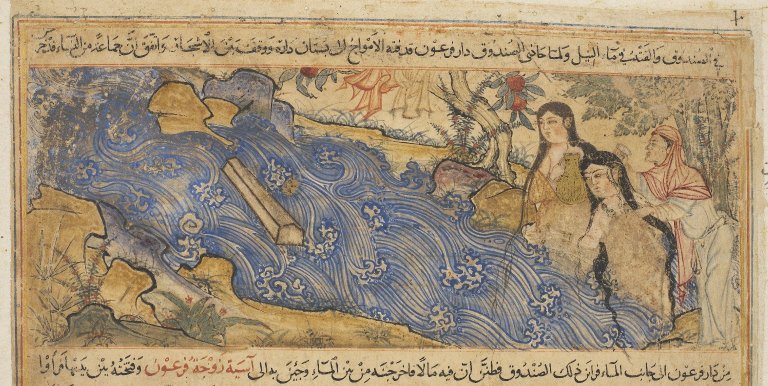 في الصندوق والقته في ماء النيل ولما حاذى الصندوق دار فرعون قدفه الامواج الى بستان داره ووقف بين الاشجار واتفق ان جماعة من النساء قد
من دار فرعون الى جانب الماء فراين ذلك الصندوق فظنن ان فيه مالا فاخرجنه من بين الماء وجئن به الى آسية زوجة فرعون وفتحنه بين يديها فراوا